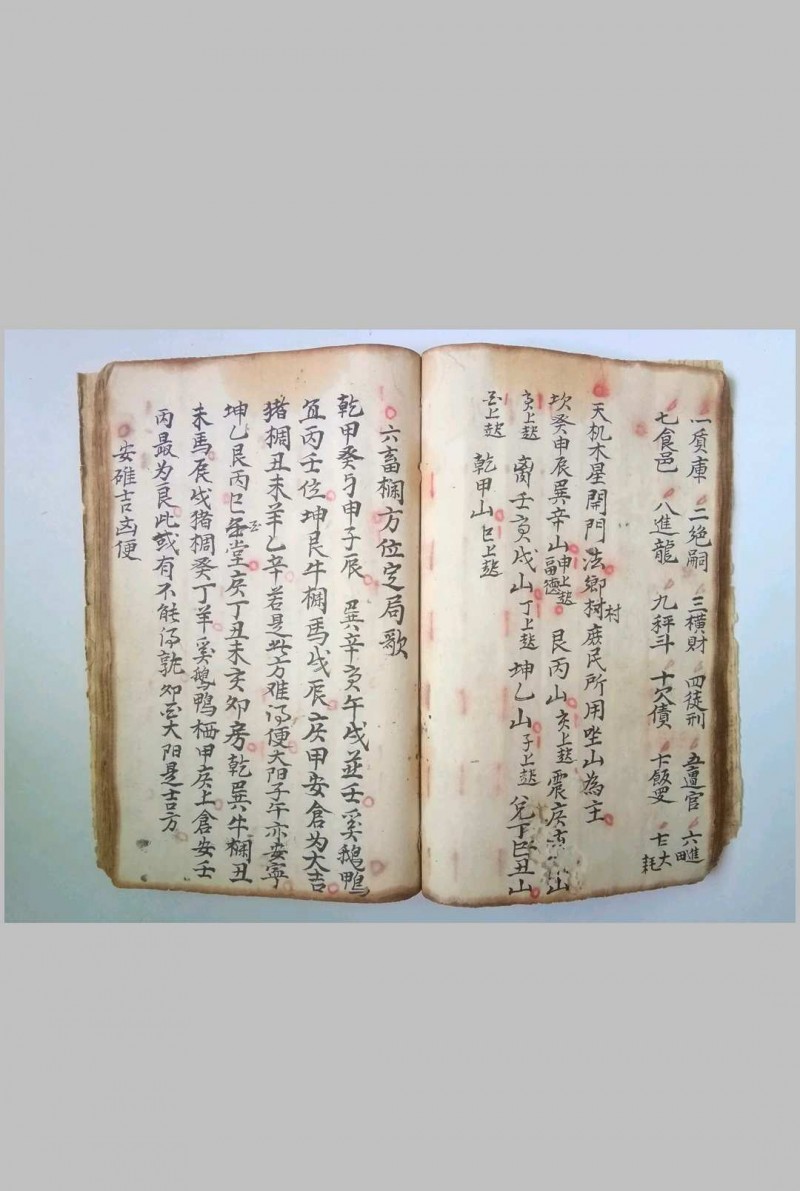 一质庫 二绝嗣 三横財 四徒刑 五宣官 六進田
七食邑 八進龍 九秤斗 十欠債 十一飯 十二大耗
天机木星開門法鄉村庶民所用坐山為主
坎癸申辰巽辛山申上起 福德 艮丙山亥上起 震庚 山
亥上起 离壬寅戌山丁上起 坤乙山子上起 兑丁巳丑山
上起 乾甲山巳上起
六畜欄方位定局歌
乾甲癸 申子辰 巽辛寅午戌並壬奚鵝鴨
宜丙壬位坤艮牛欄馬戌辰庚甲安倉为大吉
猪欄丑未羊乙辛若是此方难得便大阳子午亦安寧
坤乙艮丙巳 堂庚丁丑未亥卯房乾巽牛欄丑
未馬辰戌猪欄癸丁羊奚鵝鴨栖甲庚上倉安壬
丙最为良此或有不能得就卯 大阳是吉方
安碓吉凶便